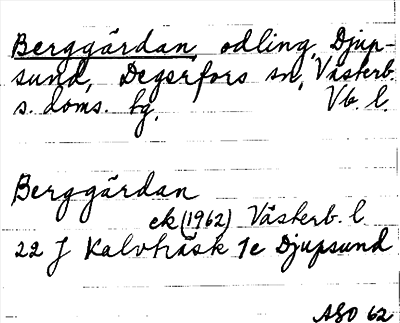 Berggärdan, odling, Djup-
sund, Degerfors sn, Västerb.
s. doms. hg. Vb. l.
Berggärdan
ek (1962) Västerb. l
22 J Kalvträsk 1e Djupsund
ASO 62